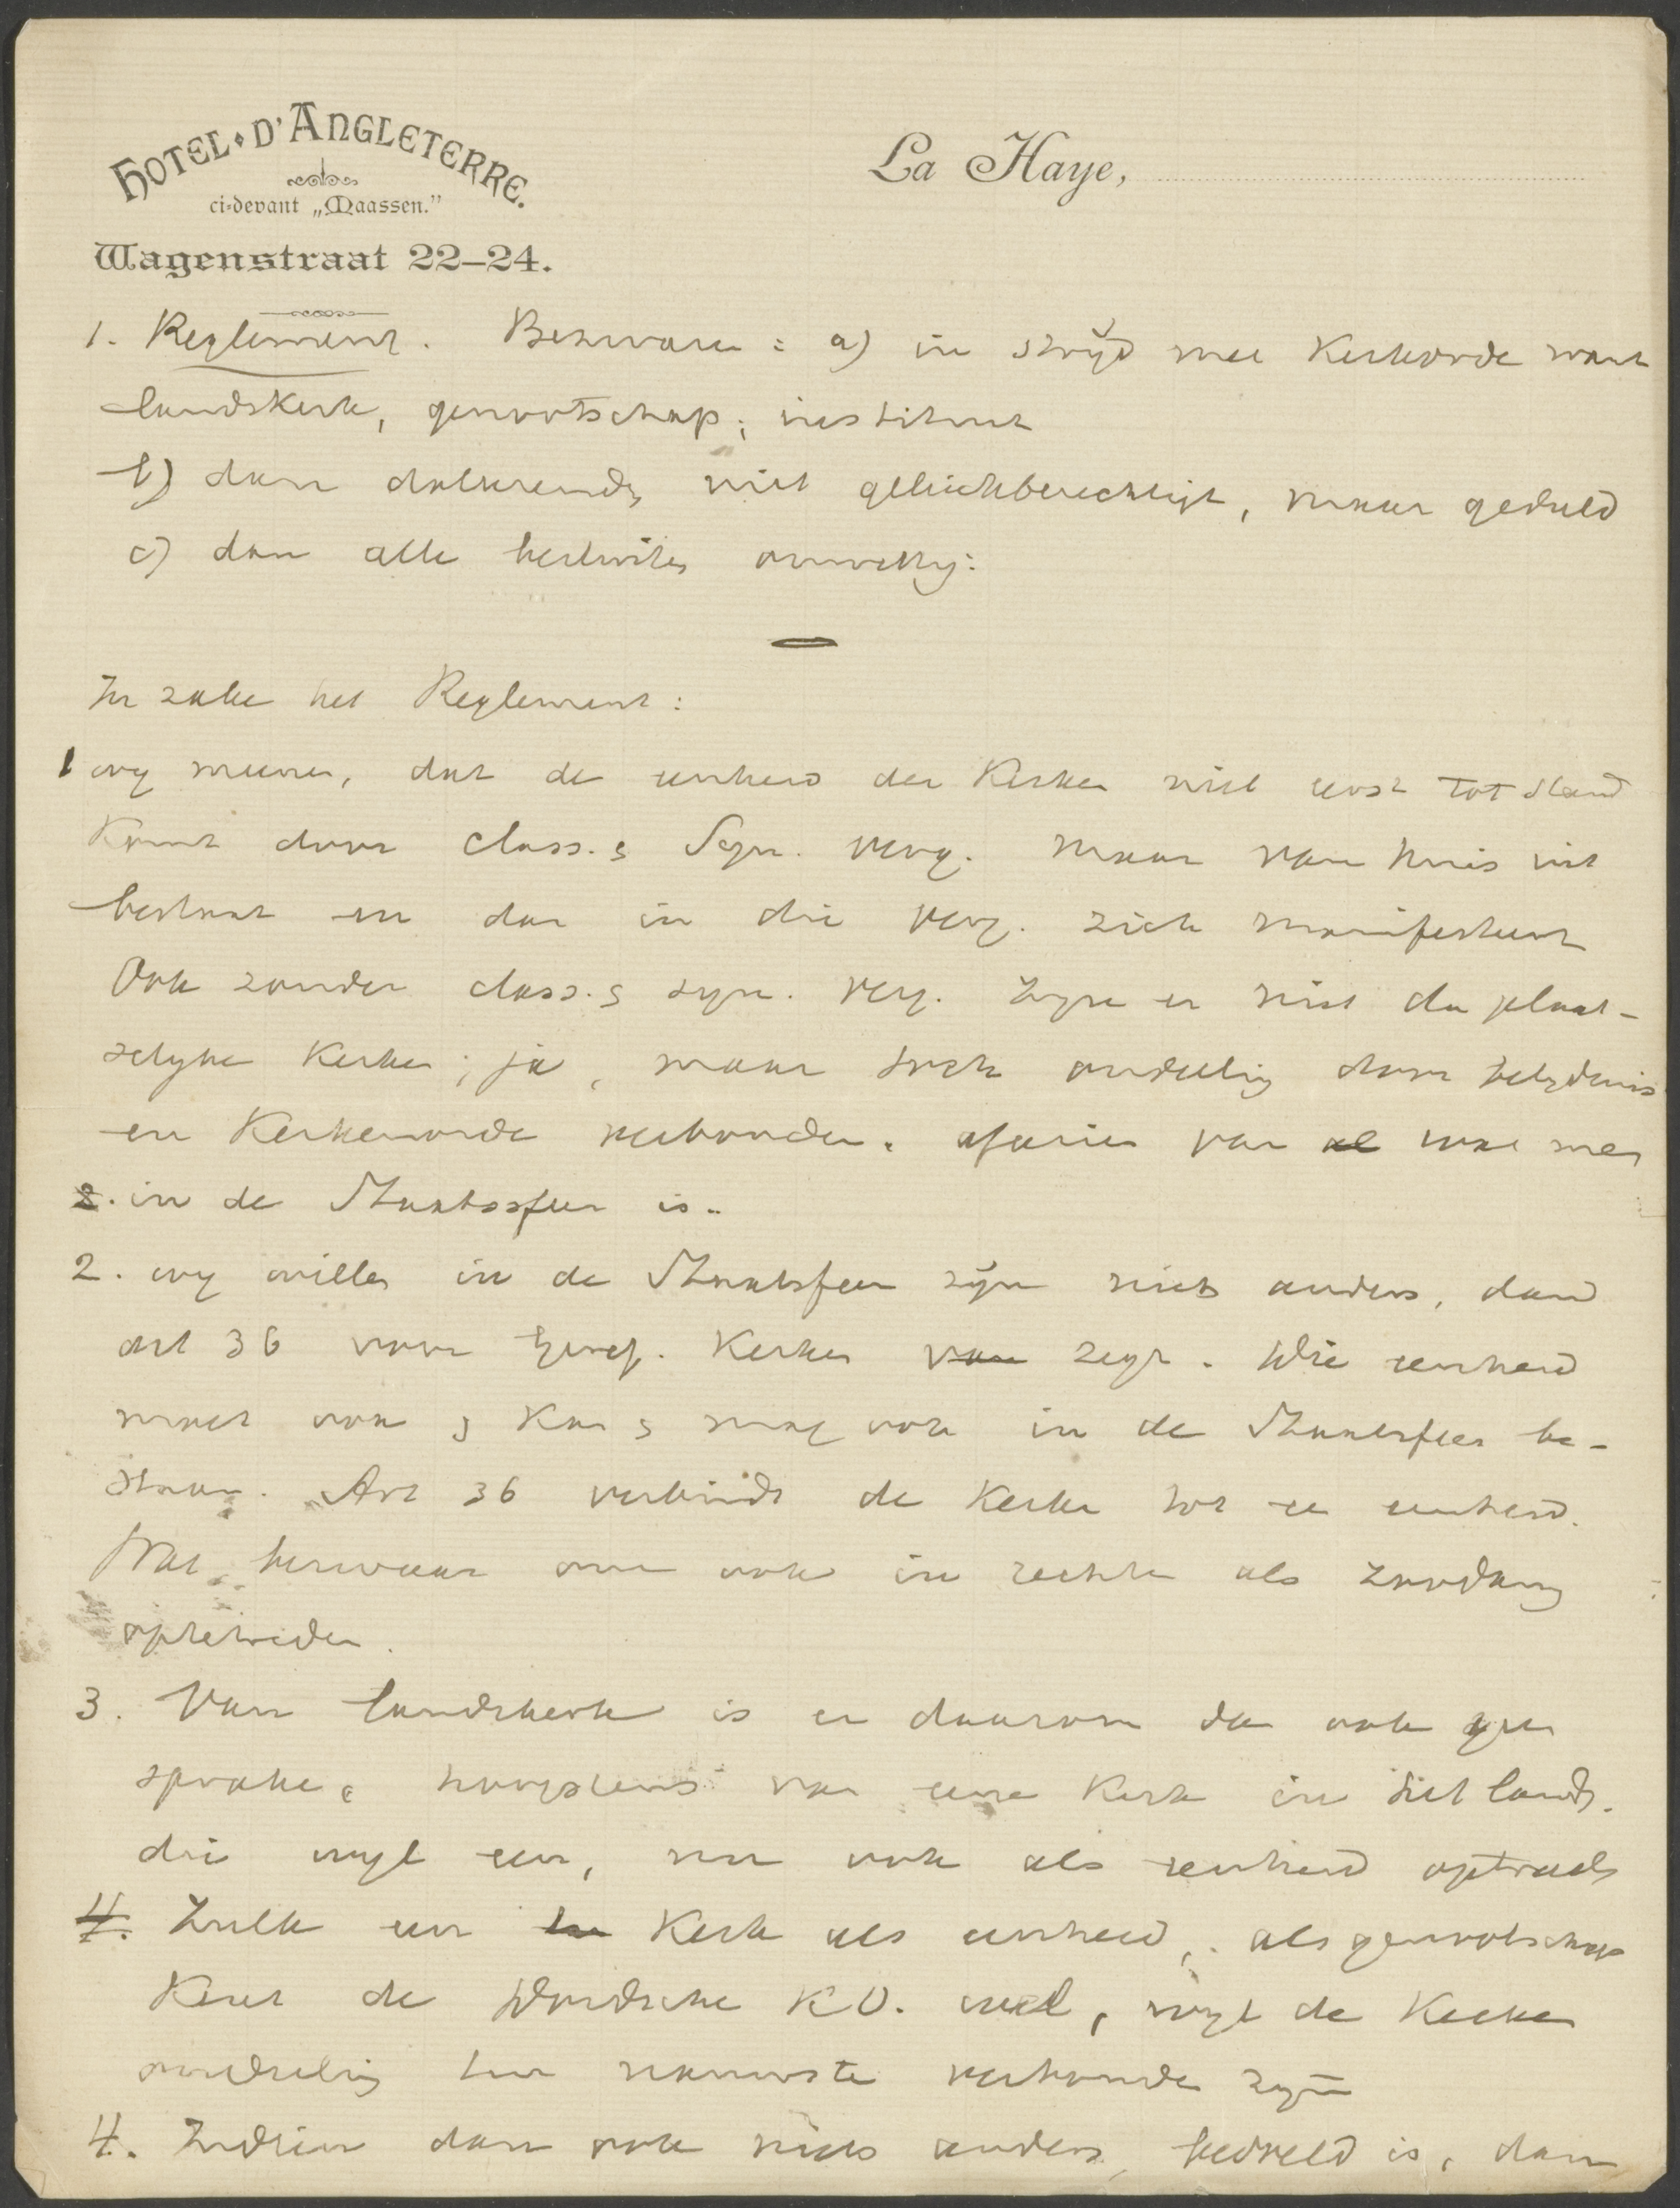 HOTEL D'ANGLETERRE.
ci-devant „Maassen.”
Wagenstraat 22–24.
La Haye,
1. Reglement. Bezwaren: a) in strijd met Kerkorde want
landskerk, genootschap, instituut
b) dan doleerende niet gelijkberechtigt, maar geduld
c) dan alle besluiten onwettig:
In zake het Reglement:
1 wy meenen, dat de eenheid der Kerken niet eerst tot stand
Komt door class. & Syn. verg. maar van huis uit
bestaat en dan in die verg. zich manifesteert
Ook zonder class. & syn. verg. zyn er niet de plaat-
selyke Kerken; ja, maar toch onderling door belydenis
en Kerkenorde verbonden. afgezien van al wat men
2. in de Staatssfeer is.
2. wy willen in de Staatsfeer zijn niets anders, dan
art 36 voor Geref. Kerken van zegt. Die eenheid
moet ook & Kan & mag ook in de Staatsfeer be-
staan. Art 36 verbindt de Kerken tot een eenheid.
Wat bezwaar om ook in rechte als zoodanig
opteteden.
3. Van landskerk is er daarom dan ook geen
sprake, hoogstens van eene Kerk in dit land.
die wyl een, nu ook als eenheid optreedt
4. Zulk een Kerk als eenheid, als genootschap
Kent de Dordsche K.O. wel, wyl de Kerken
onderling ten nauwste verbonden zyn
4. Indien dan ook niets anders bedoeld is, dan